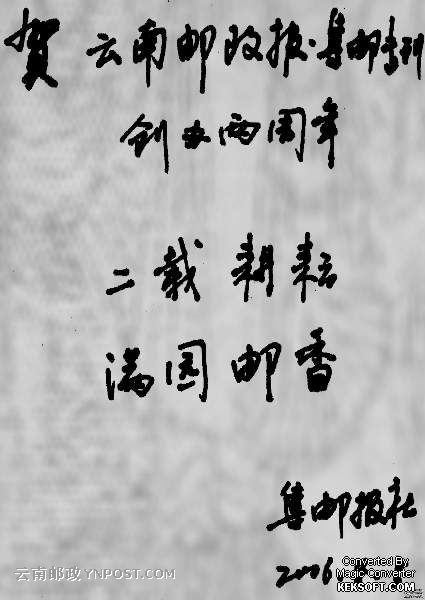 贺 云南邮政报·集邮专刊
创办两周年
二载 耕耘
满园 邮香
集邮报社
2006.
云南邮政 YNPOST.COM
Converted By
Magic Converter
KEKSOFT.COM